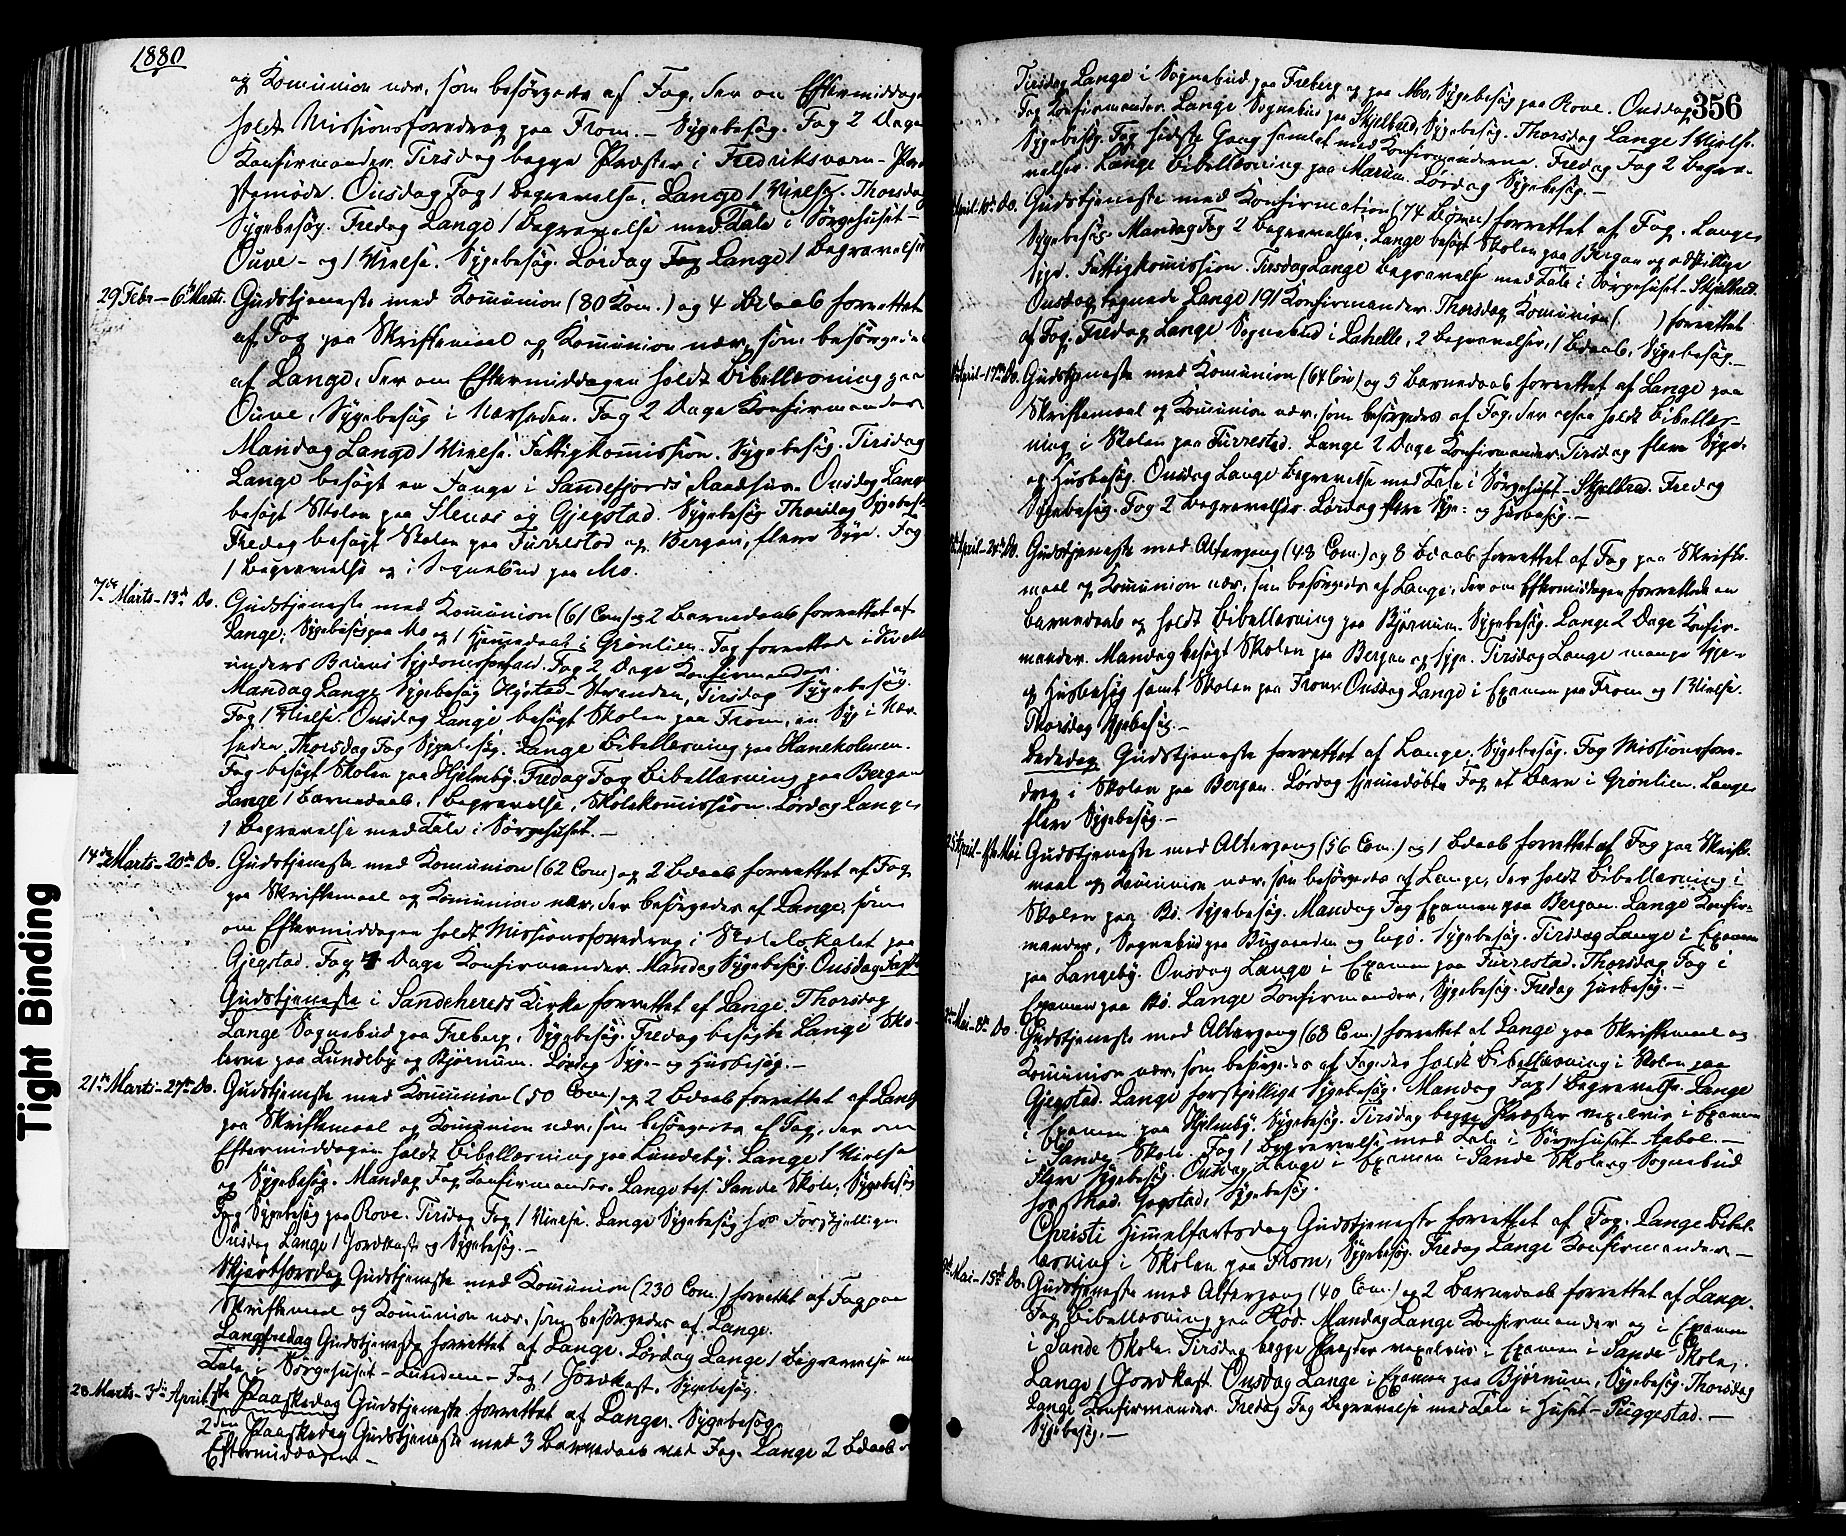 1880
og Komunion var, som besörgedes af Fog, der om Eftermiddagen
holdt Missionsforedrag paa From. – Sygebesøg. Fog 2 Dage
Konfirmander. Tirsdag begge Præster i Fredriksværn – Præ-
stemöde. Onsdag Fog 1 Begravelse, Lange 1 Vielse. Thorsdag
Sygebesøg. Fredag Lange 1 Begravelse med Tale i Sörgehuset –
Ouve – og 1 Vielse. Sygebesøg. Lördag Fog Lange 1 Begravelse
29 Febr – 6te Marts. Gudstjeneste med Komunion (80 Kom.) og 4 Bdaab forrettet
af Fog paa Skriftemaal og Komunion nær, som besörgedes
af Lange, der om Eftermiddagen holdt Bibellæsning paa
Ouve, Sygebesøg i Nærheden. Fog 2 Dage Konfirmander
Mandag Lange 1 Vielse. Fattigkomission. Sygebesøg. Tirsdag
Lange besøgt en Fange i Sandefjords Raadhus. Onsdag Lange
besøgt Skolen paa Stenaas og Gjegstad. Sygebesøg Thorsdag Sygebesøg
Fredag besøgt Skolen paa Furrestad og Bergan, flere Syge. Fog
1 Begravelse og i Sognebud paa Mo.
7de Marts – 13de Do. Gudstjeneste med Komunion (61 Com) og 2 Barnedaab forrettet af
Lange; Sygebesøg paa Mo og 1 Hjemmedaab i Grönlien. Fog forrettede i
Fog 2 Dage Konfirmander.
Mandag Lange Sygebesøg Hystad – Stranden, Tirsdag Sygebesøg.
Fog 1 Vielse. Onsdag Lange besøgt Skolen paa From, en Syg i Nær-
heden. Thorsdag Fog Sygebesøg. Lange Bibellæsning paa Haneholmen.
Fog besøgt Skolen paa Hjelmby. Fredag Fog Bibellæsning paa Bergan
Lange 1 Barnedaab, 1 Begravelse, Skolekomission. Lördag Lange
1 Begravelse med Tale i Sörgehuset. –
14de Marts – 20de Do. Gudstjeneste med Komunion (62 Com) og 2 Bdaab forrettet af Fog
paa Skriftemaal og Komunion nær, der besörgedes af Lange, som
om Eftermiddagen holdt Missionsforedrag i Skolelokalet paa
Gjegstad. Fog 4 Dage Konfirmander. Mandag Sygebesøg. Onsdag Faste
Gudstjeneste i Sandeherreds Kirke forrettet af Lange. Thorsdag
Lange Sognebud paa Freberg, Sygebesøg. Fredag besøgte Lange Sko-
lerne paa Lundeby og Bjørnum. Lördag Syge- og Husbesøg. –
21de Marts – 27de Do. Gudstjeneste med Komunion (50 Com.) og 2 Bdaab forrettet af Lange
paa Skriftemaal og Komunion nær, som besörgedes af Fog, der om
Eftermiddagen holdt Bibellæsning paa Lundeby. Lange 1 Vielse
og Sygebesøg. Mandag Fog Konfirmander. Lange bes. Sande Skole, Sygebesøg
Fog Sygebesøg paa Rove. Tirsdag Fog 1 Vielse. Lange Sygebesøg hos Forskjellige
Onsdag Lange 1 Jordkast og Sygebesøg. –
Skjærthorsdag Gudstjeneste med Komunion (230 Com.) forrettet af Fog paa
Skriftemaal og Komunion nær, som besörgedes af Lange.
Langfredag Gudstjeneste forrettet af Lange. Lördag Lange 1 Begravelse med
Tale i Sörgehuset – Lunden – Fog 1 Jordkast. Sygebesøg.
28 Marts – 3die April 1ste Paaskedag Gudstjeneste forrettet af Lange. Sygebesøg
2den Paaskedag Gudstjeneste med 3 Barnedaab ved Fog. Lange 2 Bdaab
Eftermiddagen. –
356
Tirsdag Lange i Sognebud paa Freberg og paa Mo, Sygebesøg paa Rove. Onsdag
Fog Konfirmander. Lange Sognebud paa Skjelbred, Sygebesøg. Thorsdag Lange 1 Vielse.
Sygebesøg. Fog sidste Gang samlet med Konfirmanderne. Fredag Fog 2 Begra-
velser. Lange Bibellæsning paa Marum. Lördag Sygebesøg. –
April – 10de Do. Gudstjeneste med Konfirmation (74 Börn) forrettet af Fog. Lange
Sygebesøg. Mandag Fog 2 Begravelser. Lange besøgt Skolen paa Bergan og adskillige
Syge. Fattigkomission. Tirsdag Lange Begravelse med Tale i Sörgehuset – Skjelbred.
Onsdag begynde Lange 191 Konfirmander. Thorsdag Komunion ( ) forrettet
af Fog. Fredag Lange Sognebud i Lahelle, 2 Begravelser, 1 Bdaab, Sygebesøg. –
April – 17de Do. Gudstjeneste med Komunion (64 Com) og 5 Barnedaab forrettet af Lange paa
Skriftemaal og Komunion nær, som besörgedes af Fog, der ogsaa holdt Bibellæs-
ning i Skolen paa Furrestad. Lange 2 Dage Konfirmander. Tirsdag flere Syge-
og Husbesøg. Onsdag Lange Begravelse med Tale i Sörgehuset – Skjelbred. Fredag
Sygebesøg. Fog 2 Begravelser. Lördag flere Syge- og Husbesøg. –
April – 24de Do. Gudstjeneste med Altergang (43 Com.) og 8 Bdaab forrettet af Fog paa Skrifte-
maal og Komunion nær, som besörgedes af Lange, der om Eftermiddagen forrettede en
Barnedaab og holdt Bibellæsning paa Bjørnum. Sygebesøg. Lange 2 Dage Konfir-
mander. Mandag besøgt Skolen paa Bergan og Syge. Tirsdag Lange mange Syge-
og Husbesøg samt Skolen paa From. Onsdag Lange i Examen paa From og 1 Vielse.
Thorsdag Sygebesøg. –
Bededag Gudstjeneste forrettet af Lange, Sygebesøg. Fog Missionsfore-
drag i Skolen paa Bergan. Lördag hjemmedöbte Fog et Barn i Grönlien. Lange
flere Sygebesøg. –
25 April – 1ste Mai Gudstjeneste med Altergang (56 Com.) og 1 Bdaab forrettet af Fog paa Skrifte-
maal og Komunion nær, som besörgedes af Lange, der holdt Bibellæsning i
Skolen paa Bö. Sygebesøg. Mandag Fog Examen paa Bergan. Lange Konfir-
mander, Sognebud paa Bugaarden og Engö. Sygebesøg. Tirsdag Lange i Examen
paa Langeby. Onsdag Lange i Examen paa Furrestad. Thorsdag Fog i
Examen paa Bö. Lange Konfirmander, Sygebesøg. Fredag Husbesøg. –
Mai – 8de Do. Gudstjeneste med Altergang (68 Com.) forrettet af Lange paa Skriftemaal og
Komunion nær, som besörgedes af Fog, der holdt Bibellæsning i Skolen paa
Gjegstad. Lange forskjellige Sygebesøg. Mandag Fog 1 Begravelse. Lange
i Examen paa Hjelmby. Sygebesøg. Tirsdag begge Præster vexelvis i Examen
i Sande Skole. Fog 1 Begravelse med Tale i Sörgehuset – Aabol. –
Flere Sygebesøg. Onsdag Lange i Examen i Sande Skole og Sognebud
hos Mad. Gogstad, Sygebesøg.
Christi Himmelfartsdag Gudstjeneste forrettet af Fog. Lange Bibel-
læsning i Skolen paa From, Sygebesøg. Fredag Lange Konfirmander –
Mai – 15de Do. Gudstjeneste med Altergang (40 Com.) og 2 Barnedaab forrettet af Lange.
Fog Bibellæsning paa Rös. Mandag Lange Konfirmander og i Examen
i Sande Skole. Tirsdag begge Præster vexelvis i Examen i Sande Skole,
Lange 1 Jordkast. Onsdag Lange i Examen paa Bjørnum, Sygebesøg. Thorsdag
Lange Konfirmander. Fredag Fog Begravelse med Tale i Huset – Puggestad. –
Sygebesøg. –
Tight Binding